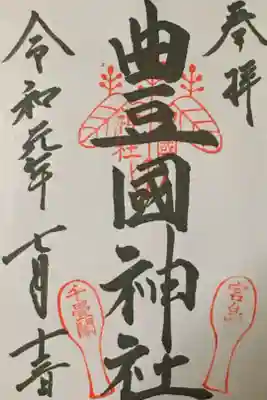 奉拝
豊國神社
令和元年七月十二日
宮島
千畳閣